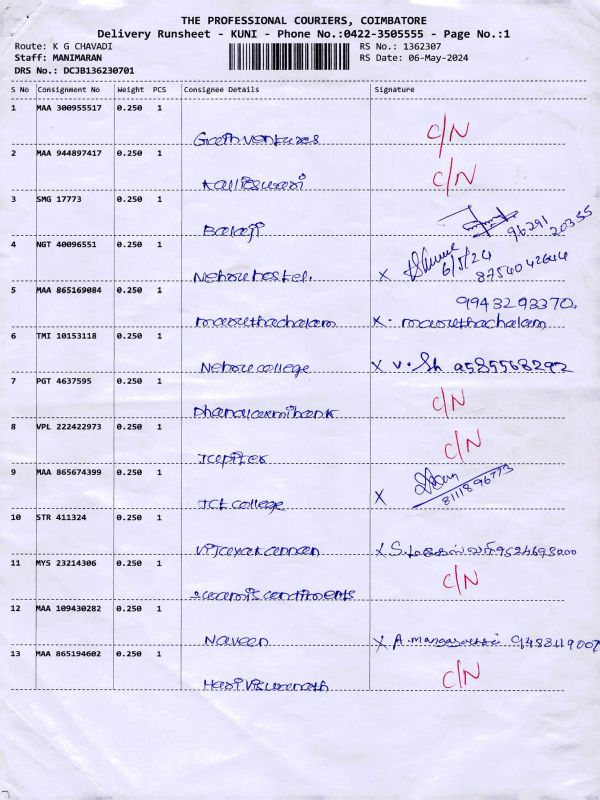 THE PROFESSIONAL COURIERS, COIMBATORE
Delivery Runsheet - KUNI - Phone No.:0422-3505555 - Page No.:1
Route: K G CHAVADI RS No.: 1362307
Staff: MANIMARAN RS Date: 06-May-2024
DRS No.: DCJB136230701
S No Consignment No Weight PCS Consignee Details Signature
1 MAA 300955517 0.250 1
C/N
2 MAA 944897417 0.250 1
C/N
3 SMG 17773 0.250 1
Balaji 96291 20355
4 NGT 40096551 0.250 1
6/5/24
Nehru hostel. X 8754042644
5 MAA 865169084 0.250 1 9943293370.
marethachalam X. marethachalam
6 TMI 10153118 0.250 1
Nehru college X V. Sh 9585568292
7 PGT 4637595 0.250 1
Dhanalaxmi bank C/N
8 VPL 222422973 0.250 1
Jupiter C/N
9 MAA 865674399 0.250 1
JCT college X 8111896773
10 STR 411324 0.250 1
Vijayakannan X S.
11 MYS 23214306 0.250 1
C/N
12 MAA 109430282 0.250 1
Naveen X A. 9488119007
13 MAA 865194602 0.250 1
Hari Viswanath C/N